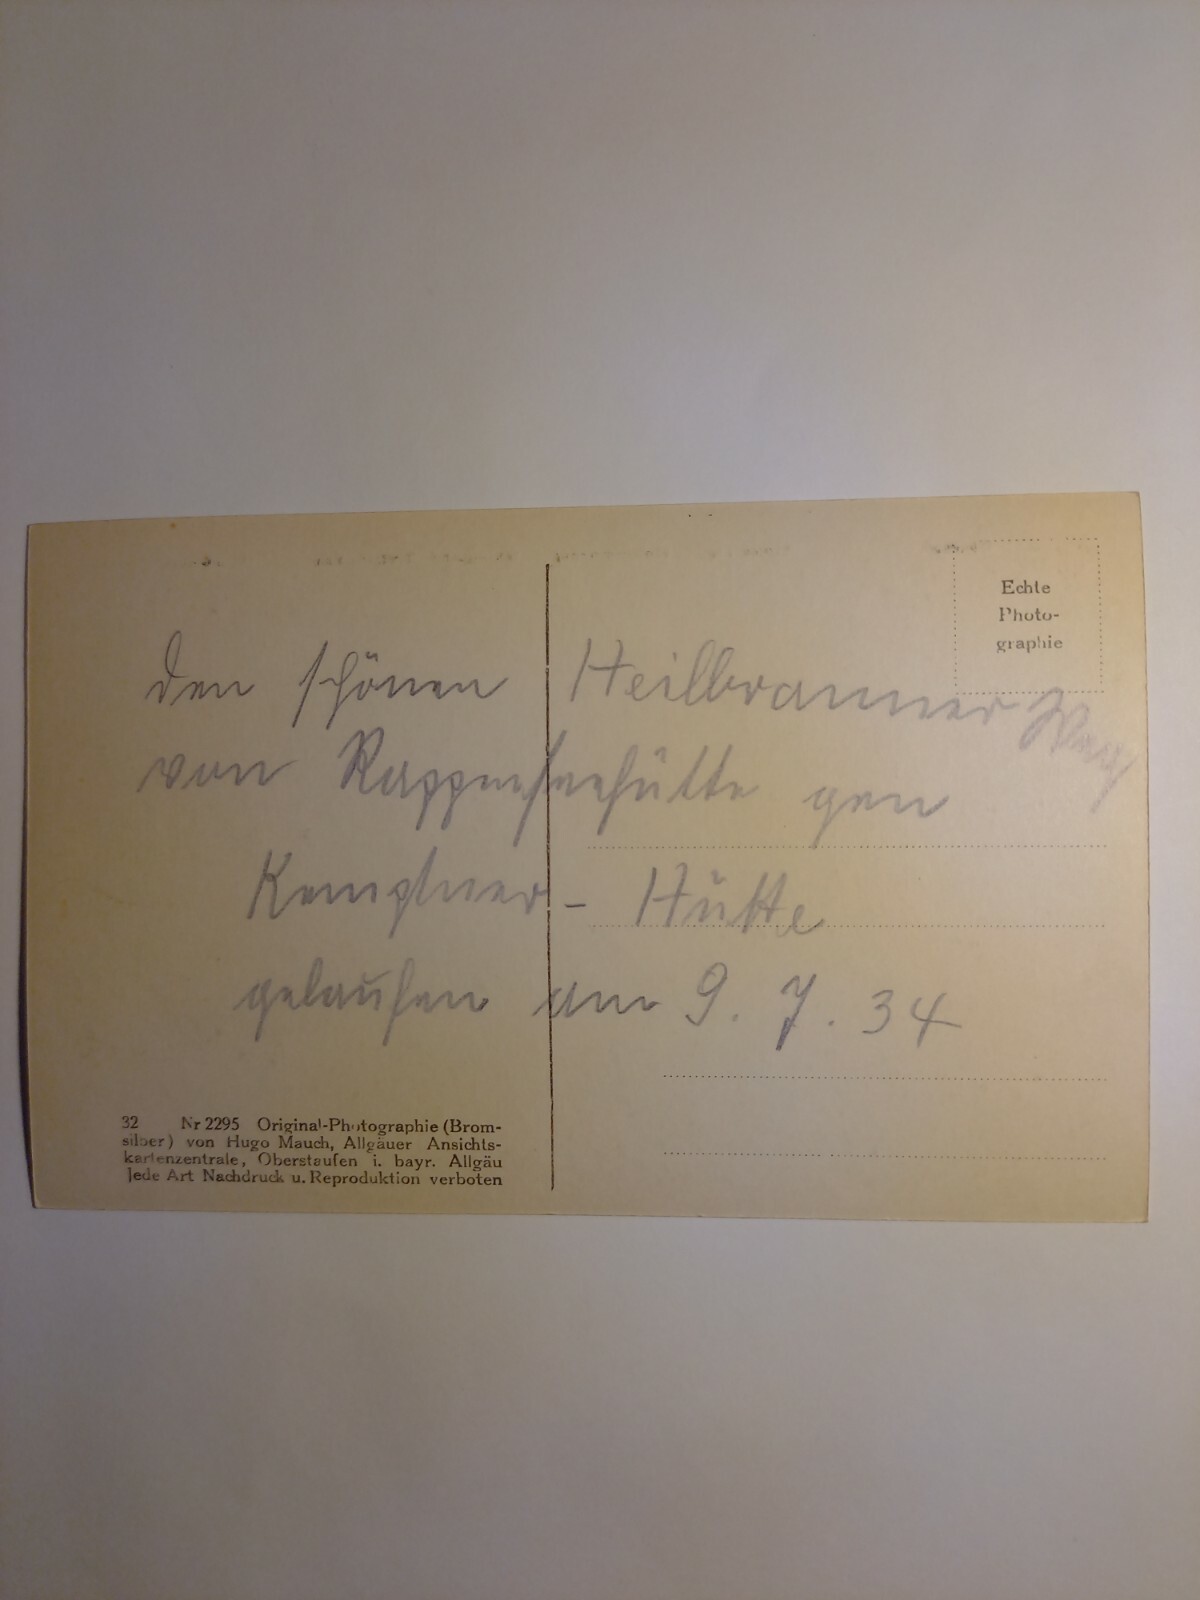 Echte
Photo-
graphie
den schönen Heilbronner Weg
von Rappenseehütte gen
Kemptner - Hütte
gelaufen am 9. 7. 34
32 Nr 2295 Original-Photographie (Brom-
silber) von Hugo Mauch, Allgäuer Ansichts-
kartenzentrale, Oberstaufen i. bayr. Allgäu
Jede Art Nachdruck u. Reproduktion verboten